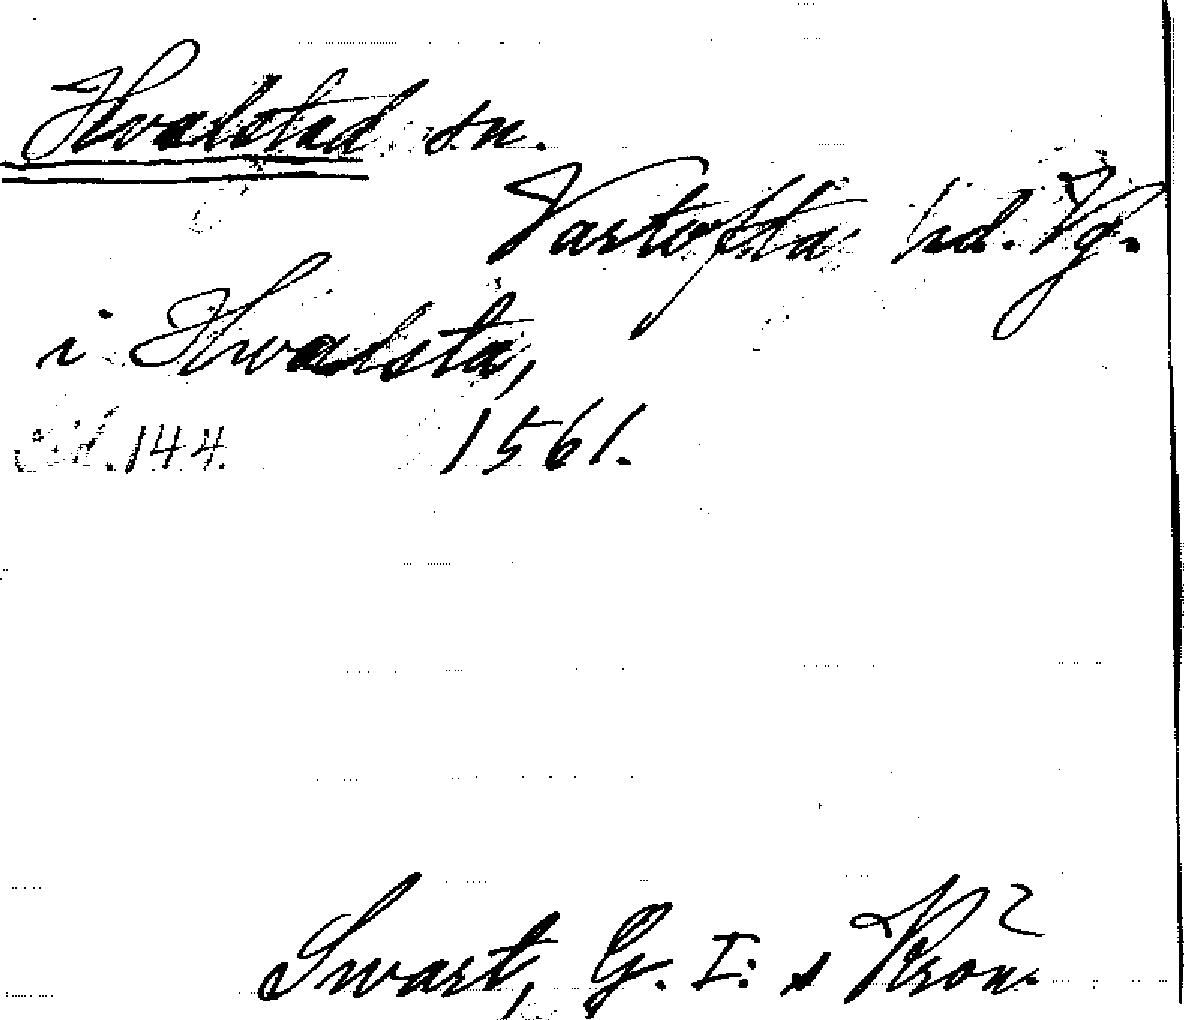 Hvalstad sn.
Vartofta hd. Vg.
i Hwalsta,
144. 1561.
Swart, G. I:s Krön.